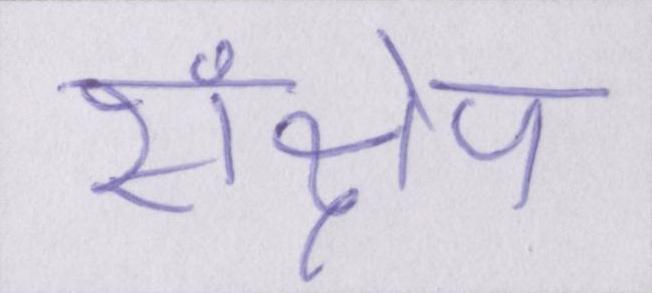 सँक्षेप